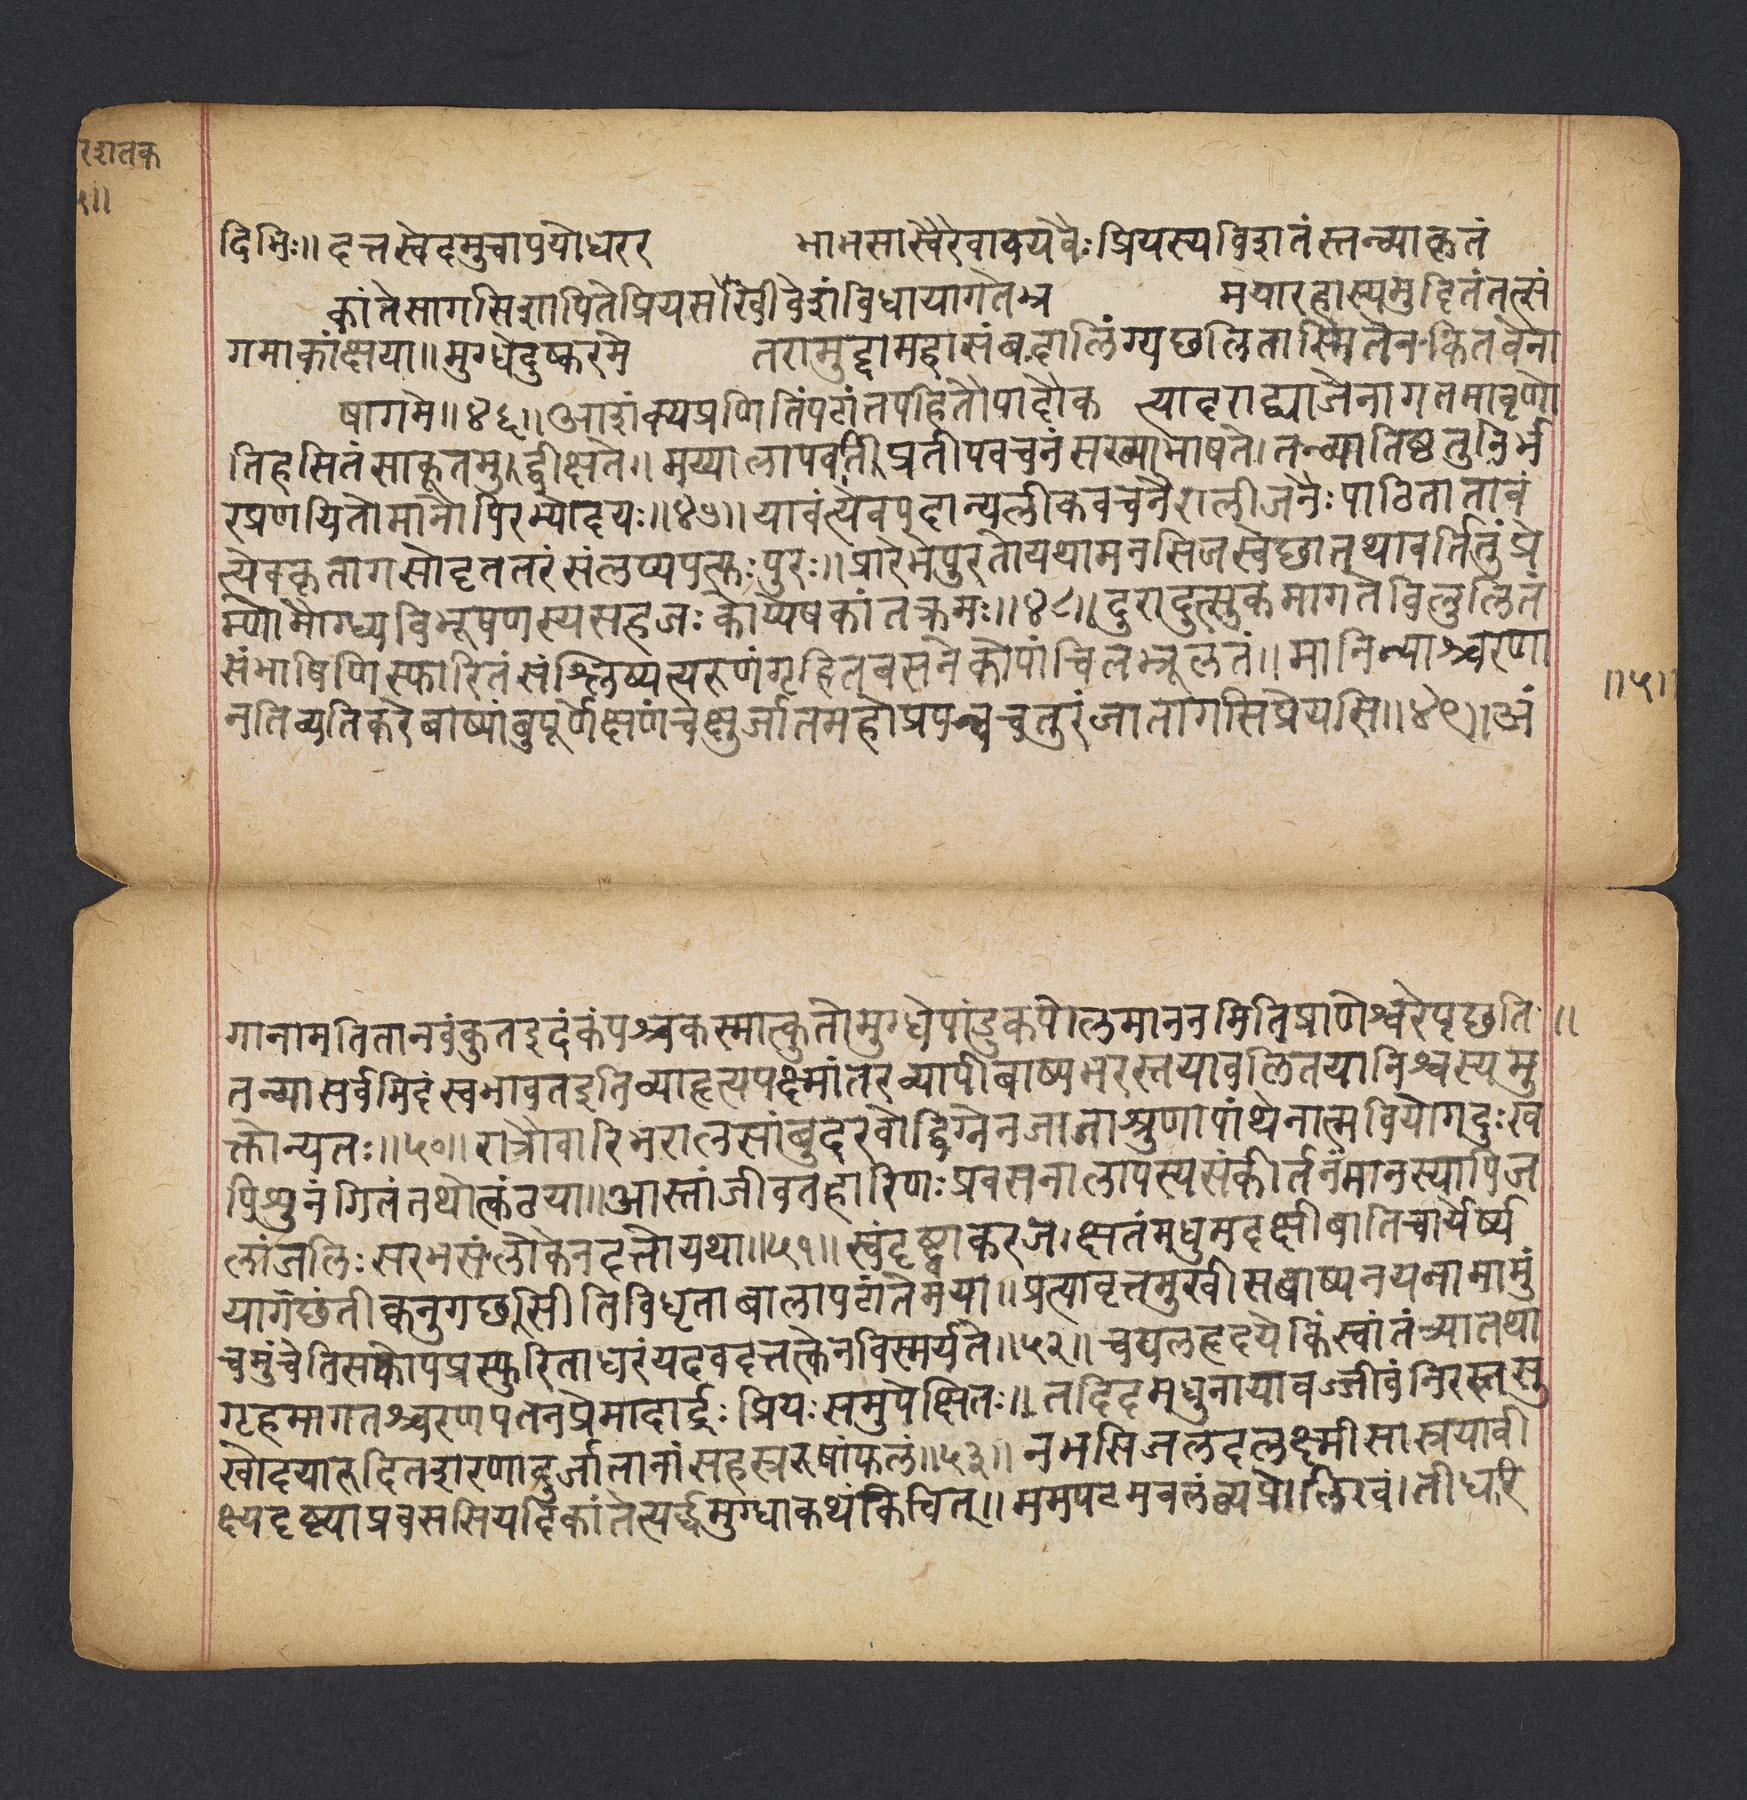 रशतक
९॥
दिभिः॥ दत्तस्वेदमुचापयोधरर भामसास्वैरेवावयवैः प्रियस्यविशतंस्तन्व्याकृतं
कांतेसागसिशापितेप्रियसखीवेशंविधायागतेभ्र मयारहास्यमुदितंतत्सं
गमाकांक्षया॥ मुग्धेदुष्करमे तरामुद्दामहासंबहालिंग्यछलितास्मितेनकितवेना
षागमे॥४६॥ आशंक्यप्रणितिंपटांतपहितौपादौक त्यादराद्व्याजेनागतमावृणो
तिहसितंसाकूतमुद्वीक्षते। मय्यालापवतीप्रतीपवचनंसख्याभाषते। तन्व्यातिष्ठतुनिर्भ
रप्रणयितोमानोपिरम्योदयः॥४७॥ यावंत्येवपुहान्यलीकवचनैरालीजनैः पाठितातावं
त्येवकृतागसोदृततरंसंलप्यपत्युः पुरः॥ प्रारेभेपुरतोयथामनसिजस्वेछातथावर्तितुंप्रे
म्णोमौग्ध्यविभूषणस्यसहजः कोप्येषकांतक्रमः॥४८॥ दुरादुत्सुकमागतेविलुलितं
संभाषिणिस्फारितंसंश्लिष्यत्यरुणंगृहितवसनेकोपांचितभ्रूलतं॥ मानिन्याश्चरणा
नतिव्यतिकरेबाष्पांबुपूर्णेक्षणंचक्षुर्जातमहोप्रपन्चचतुरंजातागसिप्रेयसि॥४९॥ अं
॥५॥
गानामतितानवंकुतइदंकंपश्चकस्मात्कुतोमुग्धेपांडुकपोलमाननमितिप्राणेश्वरेपृछति॥
तन्व्यासर्वमिदंस्वभावतइतिव्याहृत्यपक्ष्मांतरव्यापीबाष्पभरस्तयावलितयानिश्वस्यमु
क्तोन्यतः॥५०॥ रात्रौवारिभरालसांबुदरवोद्विग्नेनजाताश्रुणापांथेनात्मवियोगदुःख
पिशुनंगितंतथोत्कंठया॥ आस्तांजीवतहारिणः प्रवसनालापस्यसंकीर्तनंमानस्यापिज
लांजलिः सरभसंलोकेनदत्तोयथा॥५१॥ स्वंदृष्ट्वाकरजक्षतंमधुमदक्षीबातिचार्येर्ष्य
यागछंतीक्वनुगछसीतिविधृताबालापटांतेमया॥ प्रत्यावृत्तमुखीसबाष्पनयनामामुं
चमुंचेतिसकोपप्रस्फुरिताधरंयदवदत्तत्केनविस्मर्यते॥५२॥ चपलहृदयेकिंस्वातंत्र्यातथा
गृहमागतश्चरणपतनप्रेमादार्द्रः प्रियः समुपेक्षितः॥ तदिदमधुनायावज्जीवंनिरस्तसु
खोदयारुदितशरणादुर्जातानांसहस्वरुषांफलं॥५३॥ नभसिजलदलक्ष्मीसास्त्रयावी
क्ष्यदृष्ट्याप्रवससियदिकांतेत्यर्द्धमुग्धाकथंकिचित्॥ ममपटमवलंब्यप्रोलिखंतीधरि